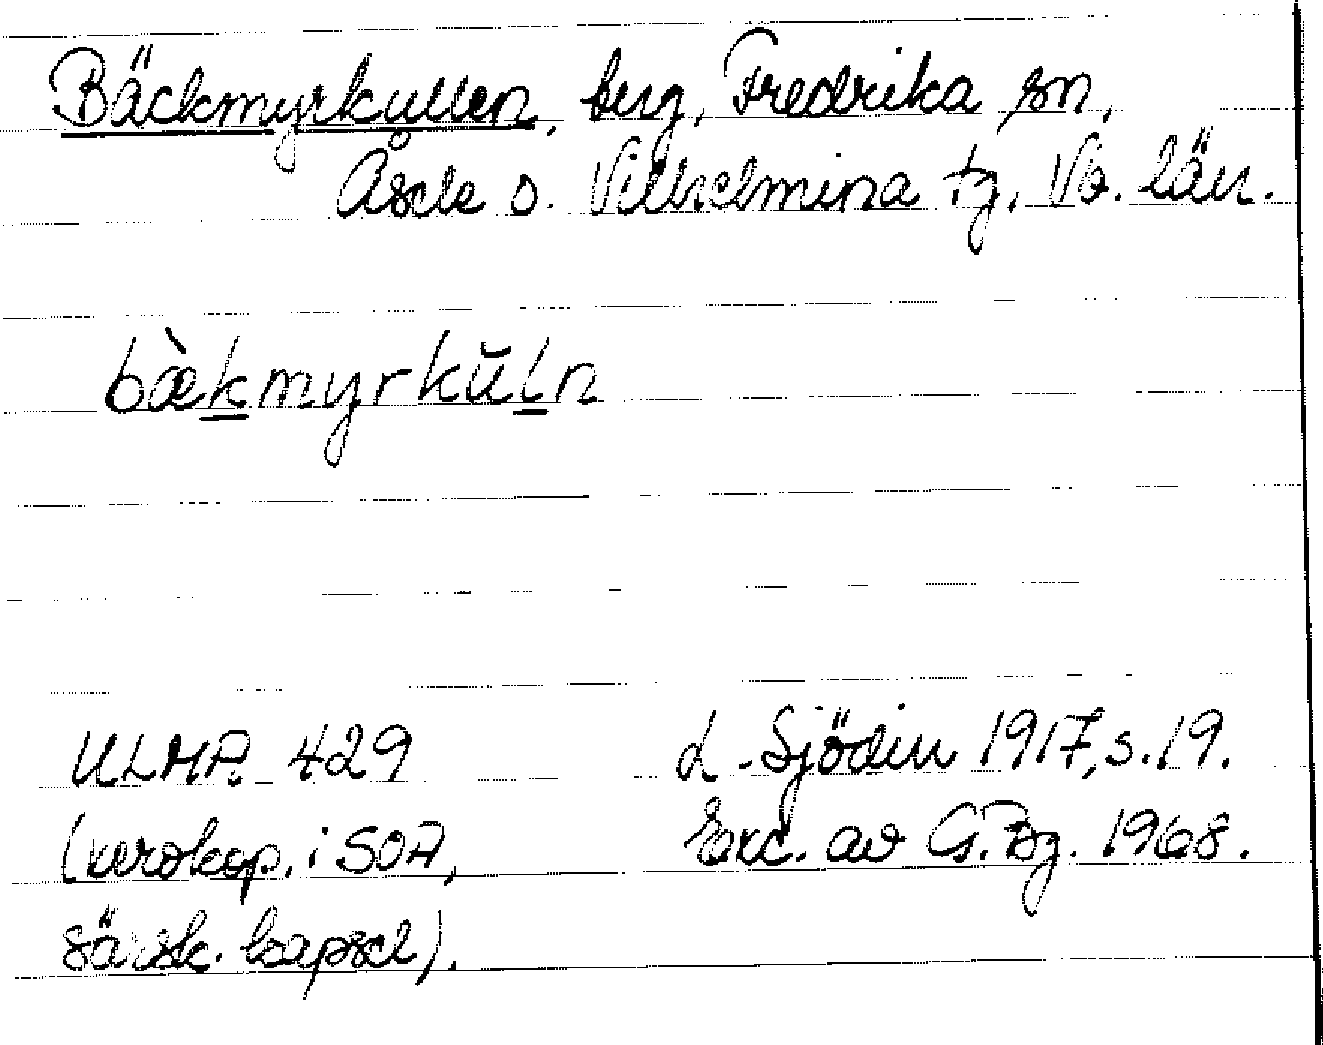 Bäckmyrkullen, berg, Fredrika sn,
Åsele o. Vilhelmina tg, Vb. län.
bæ̀kmyrkŭln
ULMA 429
L. Sjödin 1917, s. 19.
(xerokop. i SOA,
Exc. av G. Bg. 1968.
särsk. kapsel).